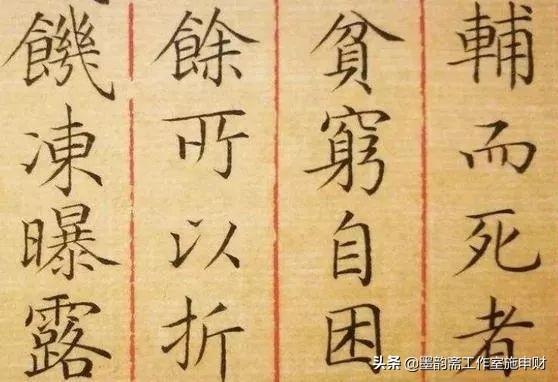 輔而死者
貧窮自困
餘所以折
饑凍曝露
头条 @墨韵斋工作室施申财